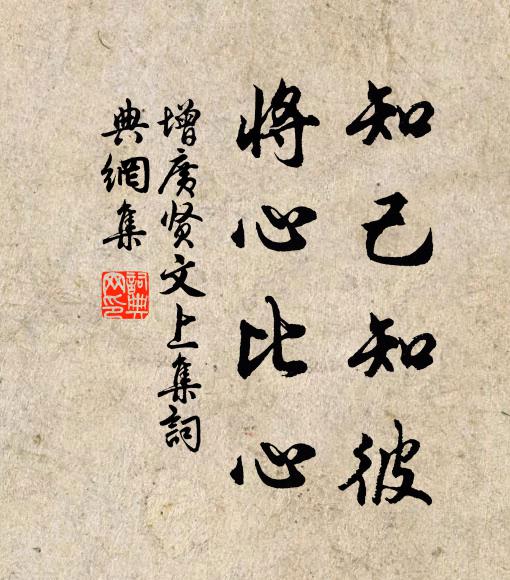 知己知彼
將心比心
增廣贤文上集詞
典網集
詞典网印